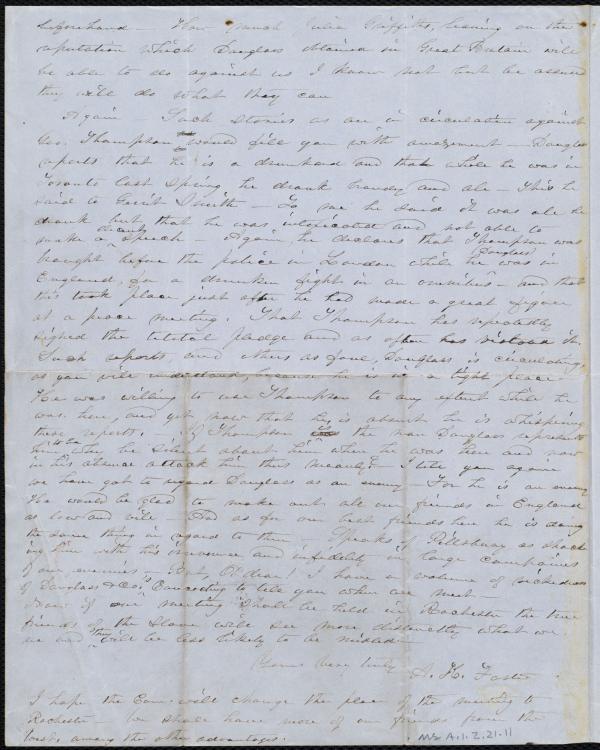 beforehand — How much Julia Griffiths, leaning on the
reputation which Douglass obtained in Great Britain will
be able to do against us I know not but be assured
they will do what they can
Again — Such stories as are in circulation against
Geo. Thompson would fill you with amazement — Douglass
reports that he is a drunkard and that while he was in
Toronto last Spring he drank brandy and ale — This he
said to Gerrit Smith — To me he said it was ale he
drank but that he was intoxicated and not able to
make a decent speech — Again, he declares that Thompson was
brought before the police in London while he (Douglass) was in
England, for a drunken fight in an omnibus — and that
this took place just after he had made a great figure
at a peace meeting. That Thompson has repeatedly
signed the tetotal pledge and as often has violated it.
Such reports, and others as foul, Douglass is circulating,
as you will understand, because he is in a tight place
He was willing to use Thompson to any extent while he
was here, and yet now that he is absent he is whispering
these reports. If Thompson is the man Douglass represents
him to be why be silent about him when he was here and now
in his absence attack him thus meanly? I tell you again
we have got to regard Douglass as an enemy — For he is an enemy
He would be glad to make out all our friends in England
as low and vile — And as for our best friends here he is doing
the same thing in regard to them — Speaks of Pillsbury as shock
ing him with his irreverence and infidelity in large companies
of our enemies — But, O! dear! I have a volume of wickedness
of Douglass & Co's to tell you when we meet —
Now if our meeting shall be held in Rochester the true
friends of the Slave will see more distinctly what we
are and they will be less likely to be misled —
Yours very truly
S. K. Foster
I hope the Com. will change the place of the meeting to
Rochester — We shall have more of our friends from the
West, among the other advantages.
Ms A.1.2.21.11